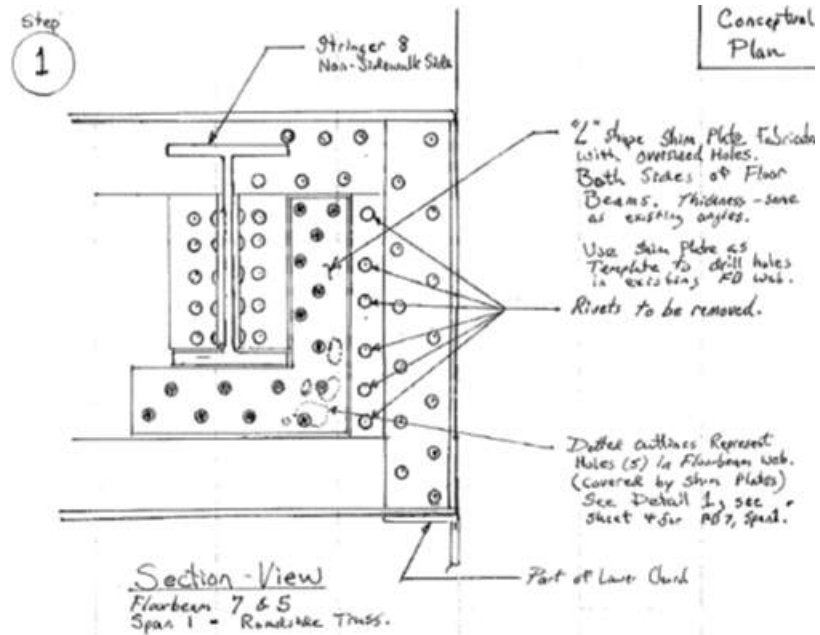 Step
1
Conceptual
Plan
Stringer 8
Non-Sidewalk Side
"L" shape Shim Plate Fabricated
with oversized Holes.
Both Sides of Floor
Beams. Thickness - same
as existing angles.
Use Shim Plate as
Template to drill holes
in existing FB web.
Rivets to be removed.
Dotted outlines Represent
Holes (5) in Floorbeam web.
(covered by shim plates)
See Detail 1, see
sheet 4 for FB7, Span 1.
Part of Lower Chord
Section - View
Floorbeam 7 & 5
Span 1 - Roadside Truss.